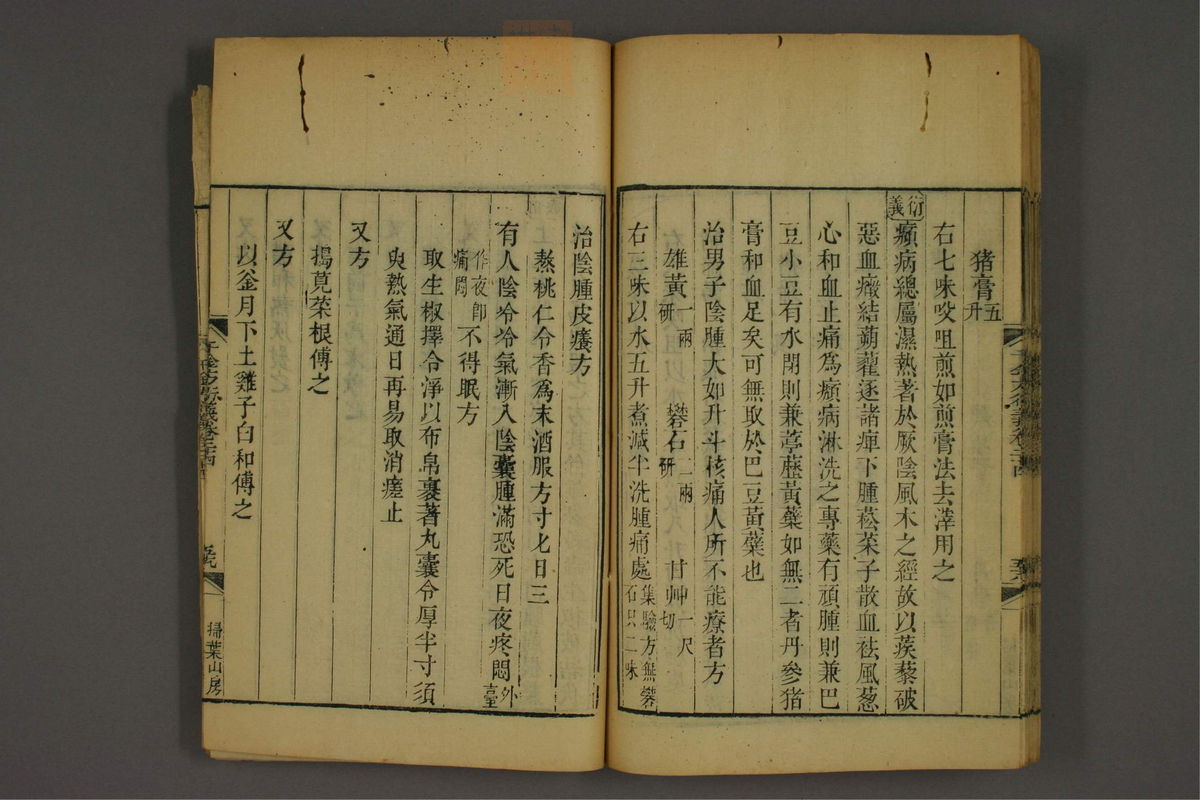 猪膏五升
右七味㕮咀煎如煎膏法去滓用之
衍義
㿗病總屬濕熱著於厥陰風木之經故以蒺藜破
惡血癥結蒴藋逐諸痺下腫菘菜子散血祛風蔥
心和血止痛爲㿗病淋洗之專藥有頑腫則兼巴
豆小豆有水閉則兼葶藶黃蘗如無二者丹參猪
膏和血足矣可無取於巴豆黃蘗也
治男子陰腫大如升斗核痛人所不能療者方
雄黃一兩研 礬石二兩研 甘艸一尺切
右三味以水五升煮減半洗腫痛處集驗方無礬石只二味
治陰腫皮癢方
熬桃仁令香爲末酒服方寸匕日三
有人陰冷冷氣漸入陰囊腫滿恐死日夜疼悶外臺
作夜卽痛悶不得眠方
取生椒擇令淨以布帛裹著丸囊令厚半寸須
臾熱氣通日再易取消瘥止
又方
搗莧菜根傅之
又方
以釜月下土雞子白和傅之
千金方衍義卷二十四
掃葉山房